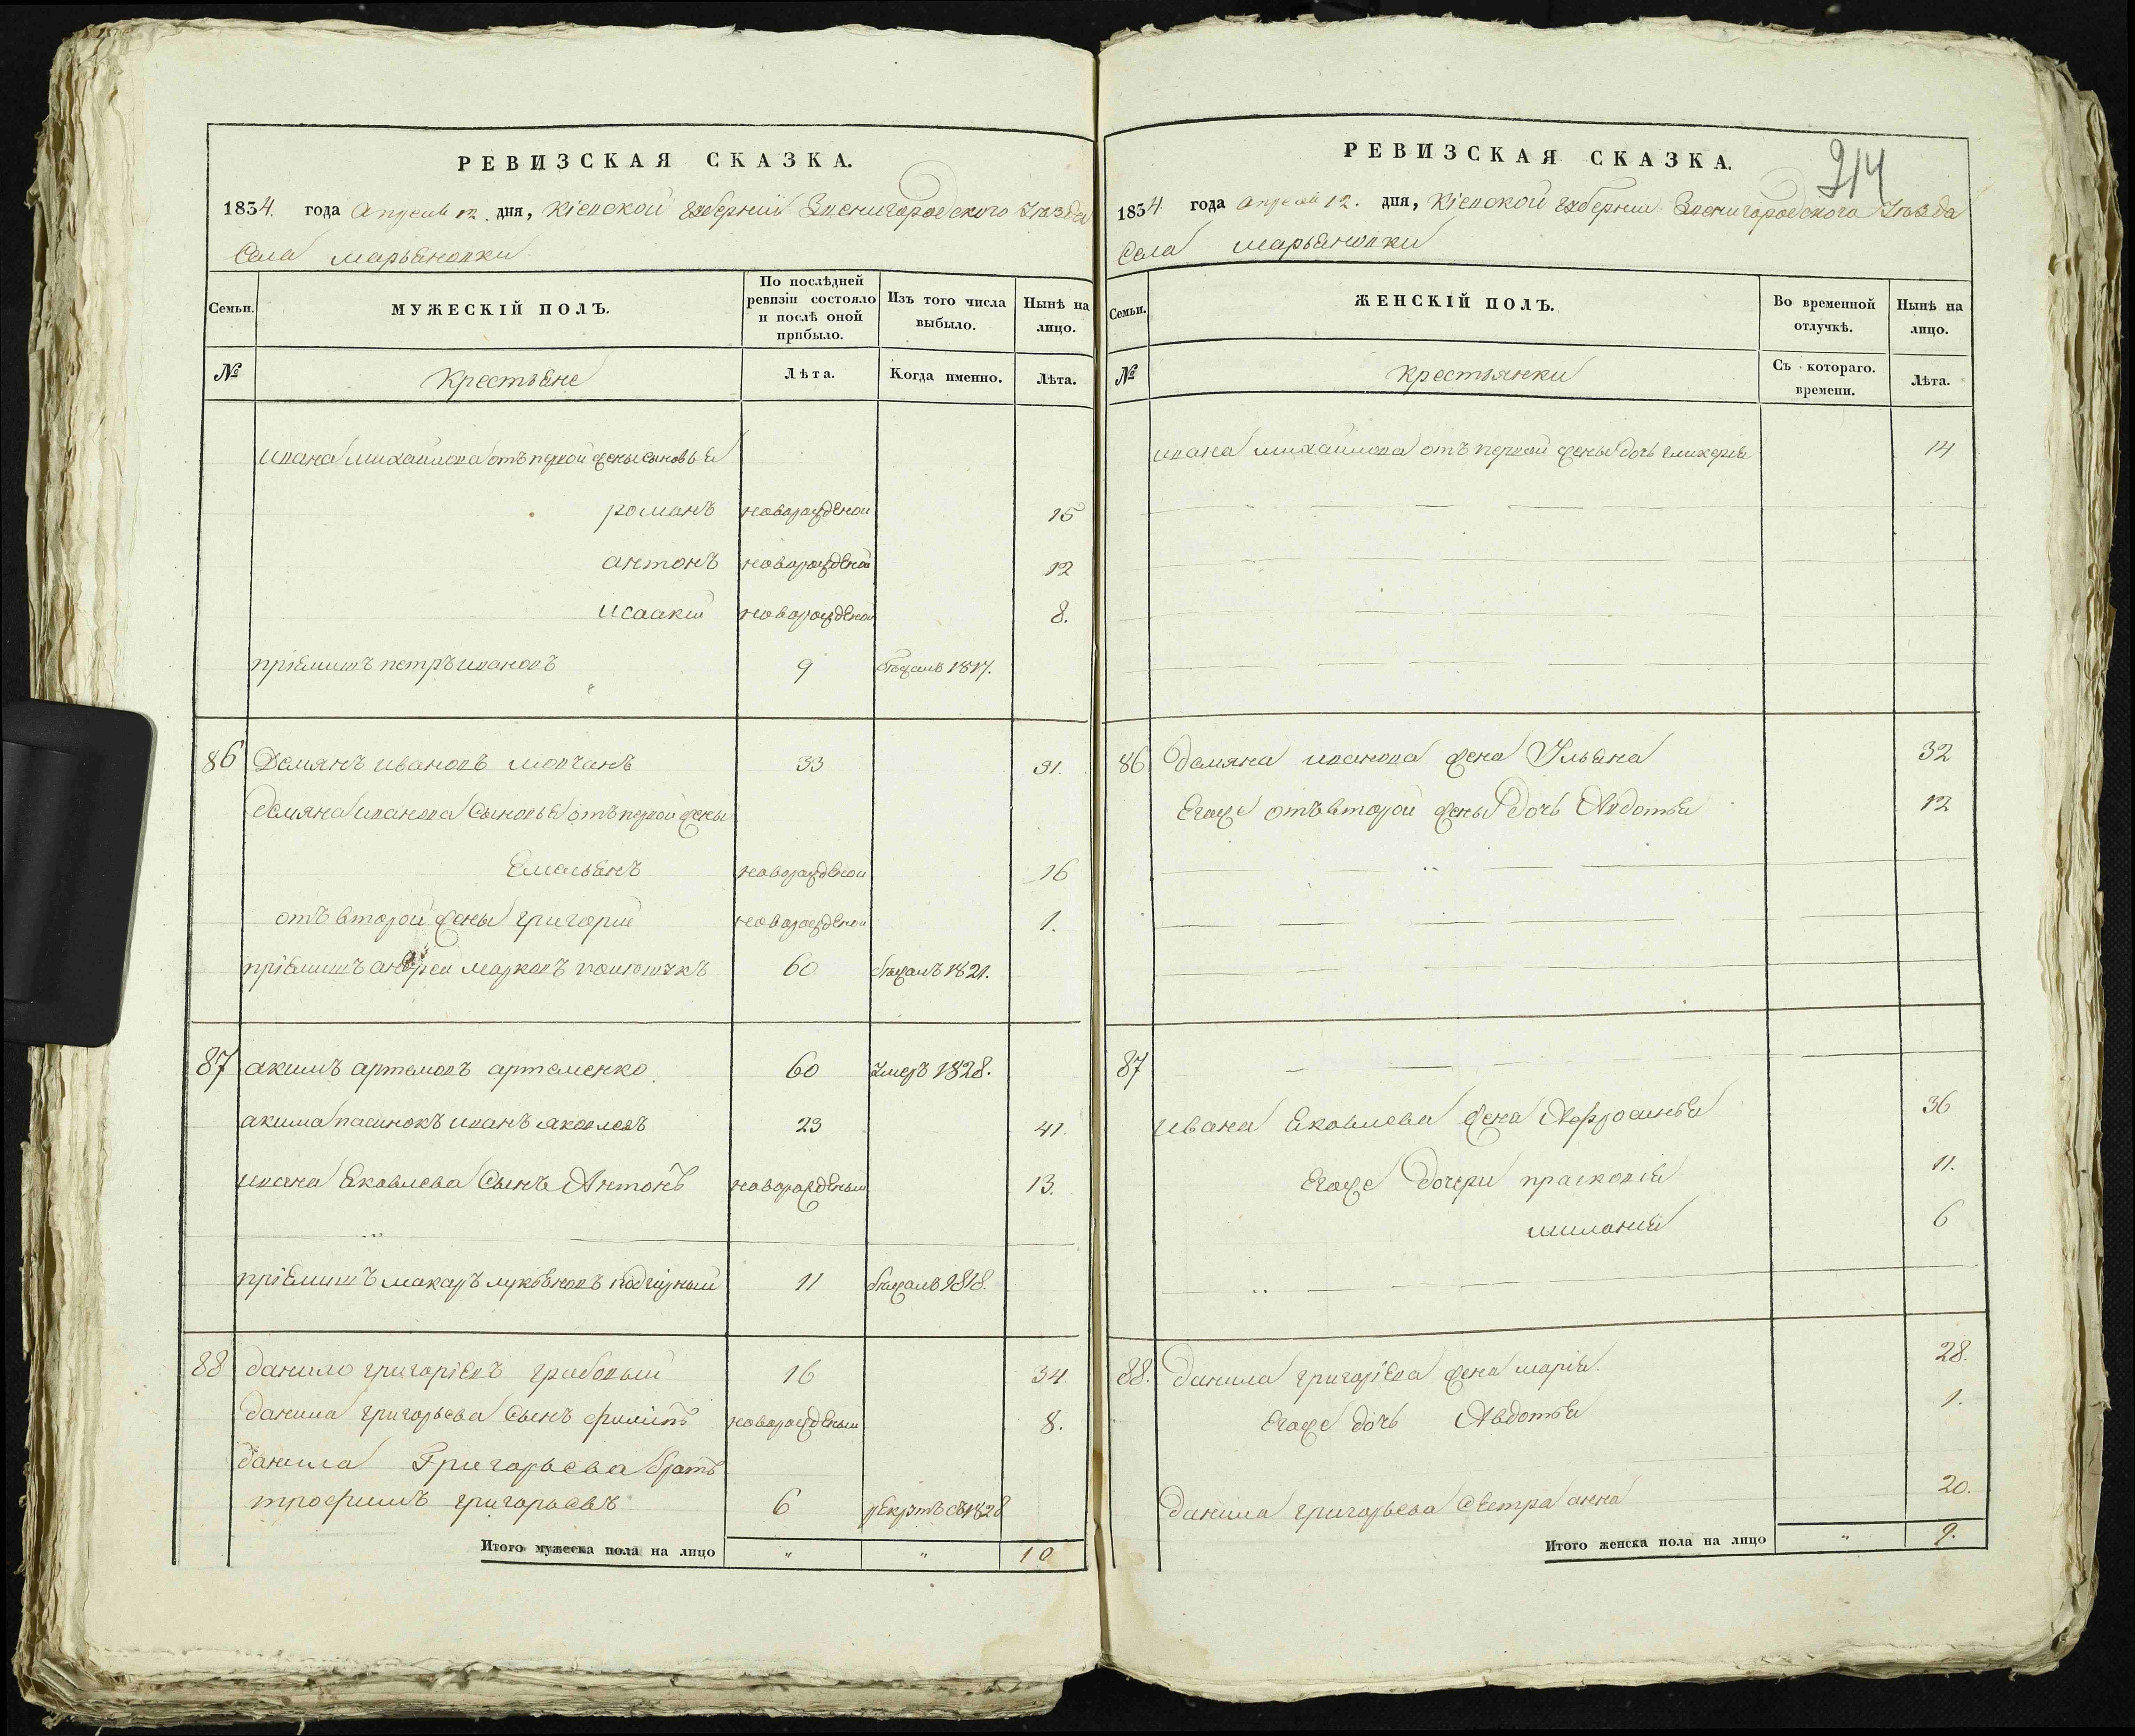 РЕВИЗСКАЯ СКАЗКА.
1834. года Апреля 12. дня, Кіевской губерніи Звенигородского Уѣзда
Села Марьяновки
Семьи. МУЖЕСКІЙ ПОЛЪ. По послѣдней ревизіи состояло и послѣ оной прибыло. Изъ того числа выбыло. Нынѣ на лицо.
№ Крестьяне Лѣта. Когда именно. Лѣта.
ивана михайлова отъ первой жены сыновья
романъ новорожденой 15
антонъ новорожденой 12
исаакій новорожденой 8.
пріемишъ петръ ивановъ 9 бѣжалъ 1817.
86 Демянъ ивановъ мовчанъ 33 51.
демяна иванова сыновья отъ первой жены
Емельянъ новорожденой 16
отъ второй жены григорій новорожденой 1.
пріемишъ андрей марковъ 60 бѣжалъ 1821.
87 акимъ артемовъ артеменко 60 умеръ 1828.
акима пасинокъ иванъ яковлевъ 23 41.
ивана яковлева сынъ Антонъ новорожденый 13.
пріемишъ макаръ лукьяновъ подгірный 11 бѣжалъ 1818.
88 данило григоріевъ грабовый 16 34.
данила григорьева сынъ филипъ новорожденый 8.
данила Григорьева братъ
трофимъ григорьевъ 6 рекрутъ съ 1828
Итого мужеска пола на лицо " " 10
РЕВИЗСКАЯ СКАЗКА. 214
1834 года Апреля 12. дня, Кіевской губерніи Звенигородского Уѣзда
Села Марьяновки
Семьи. ЖЕНСКІЙ ПОЛЪ. Во временной отлучкѣ. Нынѣ на лицо.
№ Крестьянки Съ котораго. времени. Лѣта.
ивана михайлова отъ первой жены дочь гликерія 14
86 Демяна иванова жена Ульяна 32
Егоже отъ второй жены дочь Авдотья 12
87
ивана яковлева жена Афросинья 36
Егоже дочери прасковія 11.
миланія 6
88. данила григоріева жена марія. 28.
Егоже дочь Авдотья 1.
данила григорьева сестра анна 20.
Итого женска пола на лицо " 9.